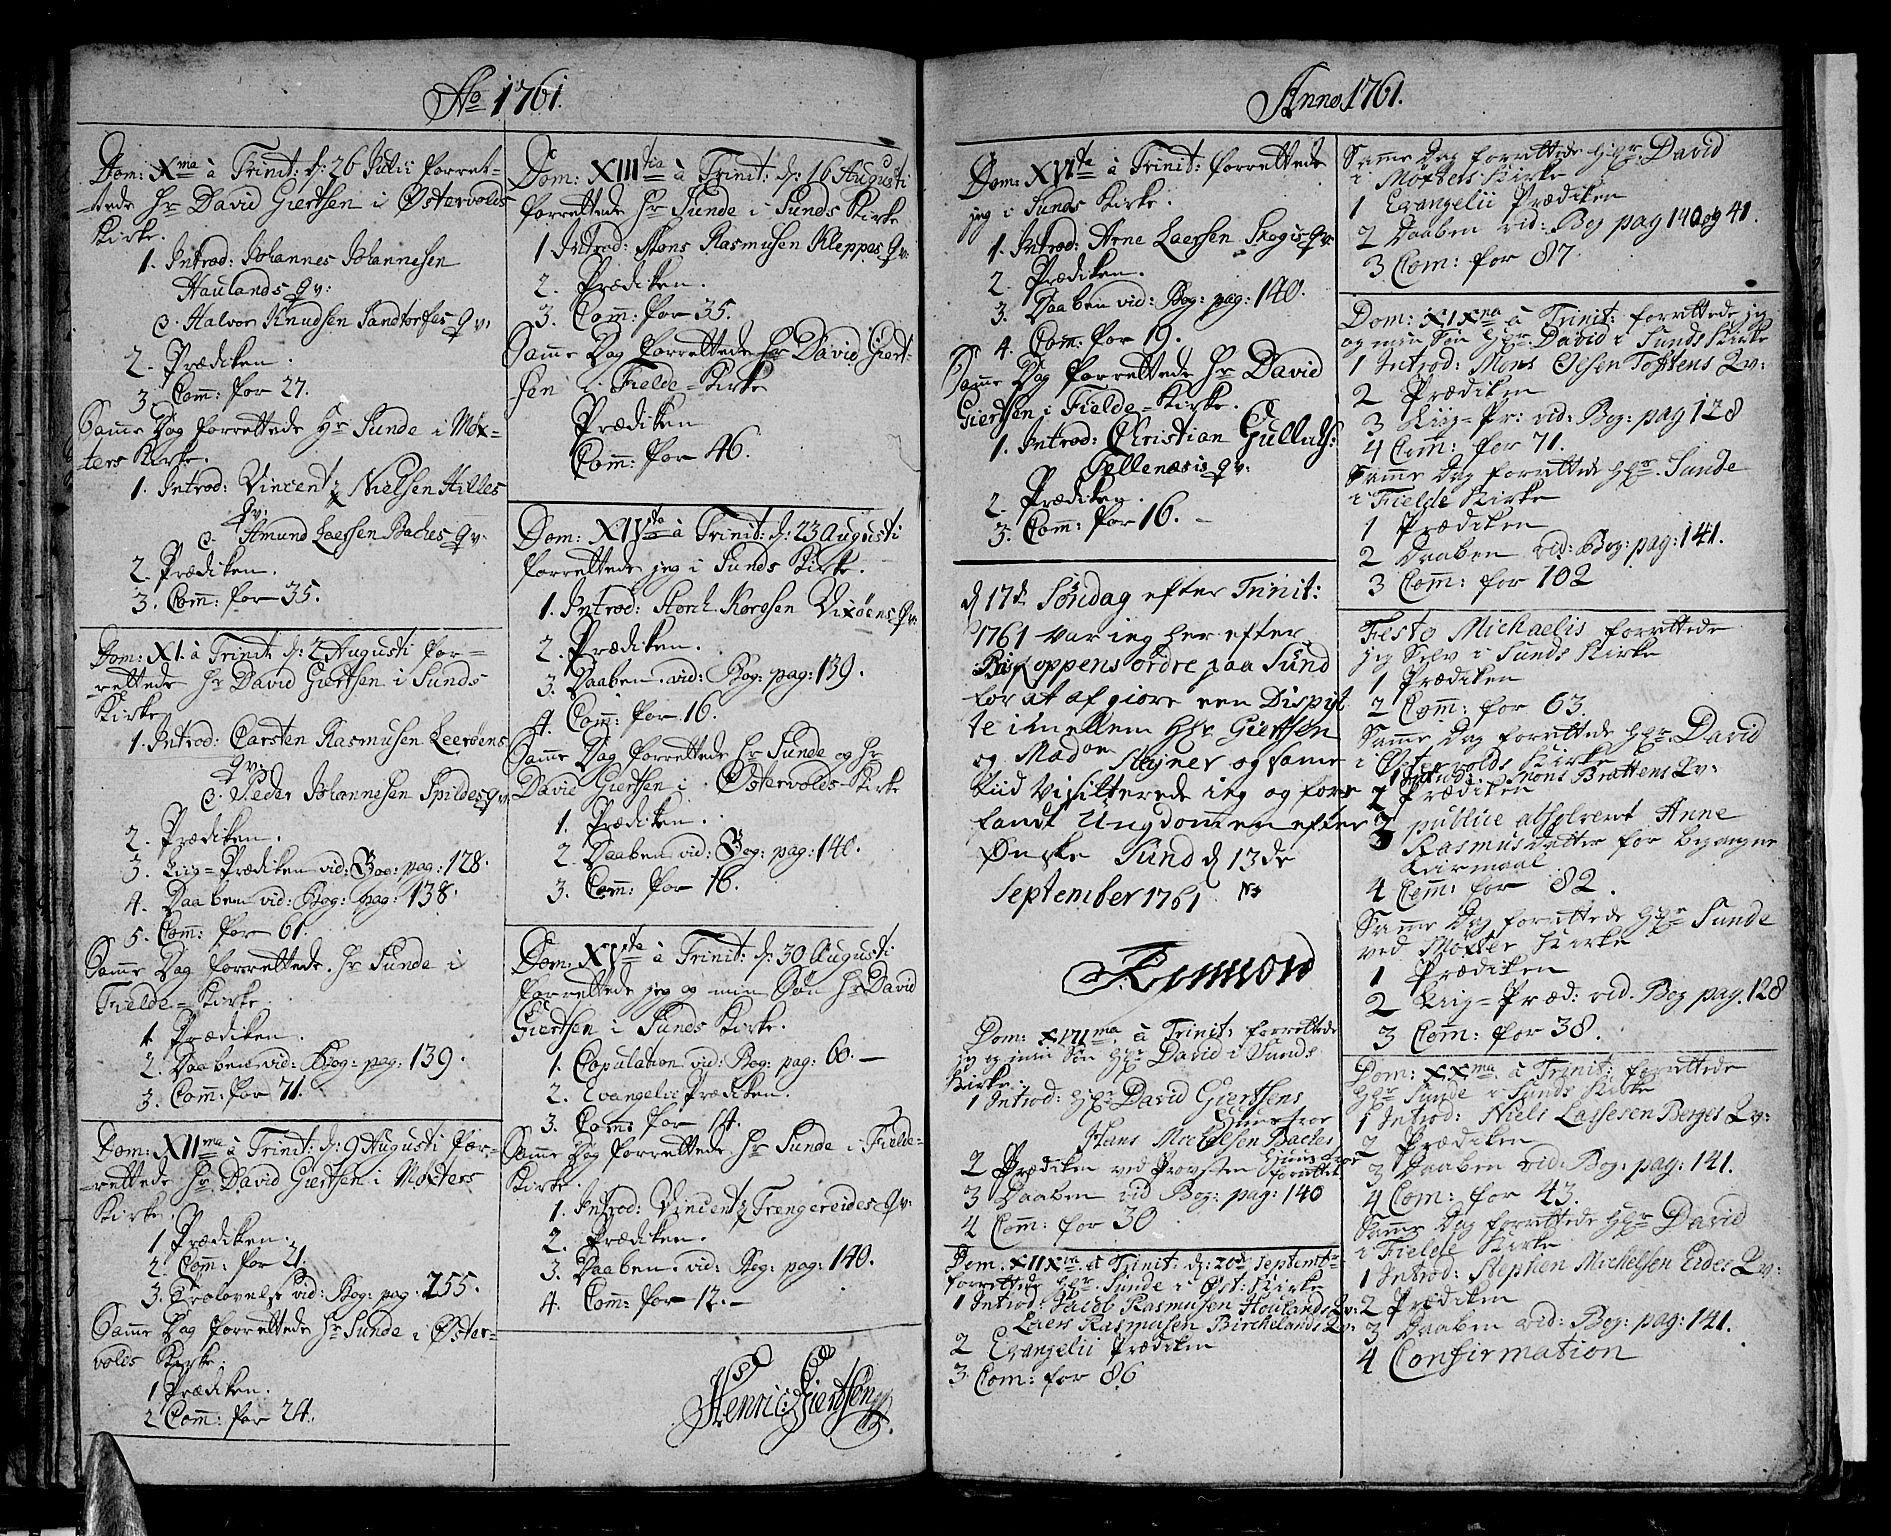 Ao 1761.
Dom: Xma à Trinit: d: 26 Julii forret-
-tede Hr David Giertsen i Østervolds
Kirke.
1. Introd: Johannes Johannesen
Haulands Qv:
e. Halvor Knudsen Sandtorfes Qv:
2. Prædiken.
3. Com: for 27.
Samme Dag forrettede Hr Sunde i Møx-
ters Kirke.
1. Introd: Vincentz Nielsen Hilles
Qv:
e. Amund Laersen Baches Qv:
2. Prædiken.
3. Com: for 35.
Dom: XI. à Trinit: d: 2 Augusti for-
-rettede Hr David Giertsen i Sunds
Kirke
1. Introd: Carsten Rasmusen Leerøens
Qv:
e. Peder Johannesen Spildes Qv:
2. Prædiken.
3. Liig-Prædiken vid: Bog: pag: 128.
4. Daaben vid: Bog: pag: 138.
5. Com: for 61.
Samme Dag forrettede Hr Sunde i
Fielde-Kirke.
1. Prædiken.
2. Daaben vid: Bog: pag: 139.
3. Com: for 71.
Dom: XIIma à Trinit: d: 9 Augusti for-
-rettede Hr David Giertsen i Møxters
Kirke.
1 Prædiken.
2. Com: for 21.
3. Trolovelse vid: Bog: pag: 255.
Samme Dag forrettede Hr Sunde i Øster-
volds Kirke.
1 Prædiken.
2 Com: for 24.
Dom: XIIItia à Trinit: d: 16 Augusti
forrettede Hr Sunde i Sunds Kirke
1. Introd: Mons Rasmusen Kleppes Qv:
2. Prædiken.
3. Com: for 35.
Samme Dag forrettede Hr David Giert-
sen i Fielde-Kirke
Prædiken
Com: for 46.
Dom: XIVta à Trinit: d: 23 Augusti
forrettede jeg i Sunds Kirke.
1. Introd: Vixøens Qv:
2. Prædiken.
3. Daaben vid: Bog: pag: 139.
4. Com: for 16.
Samme Dag forrettede Hr Sunde og Hr
David Giertsen i Østervolds Kirke
1. Prædiken.
2. Daaben vid: Bog: pag: 140.
3. Com: for 16.
Dom: XVta à Trinit: d: 30 Augusti
forrettede jeg og min Søn Hr David
Giertsen i Sunds Kirke.
1. Copulation vid: Bog: pag: 60.—
2. Evangelii Prædiken.
3. Com: for 14.
Samme Dag forrettede Hr Sunde i Fielde-
Kirke.
1. Introd: Vincentz Trengereides Qv:
2. Prædiken.
3. Daaben vid: Bog: pag: 140.
4. Com: for 12.—
Henric Giertsen
Anno 1761.
Dom: XVIta à Trinit: forrettede
jeg i Sunds Kirke.
1. Introd: Arne Laersen Skogis Qv:
2. Prædiken.
3. Daaben vid: Bog: pag: 140.
4. Com: for 19.
Samme Dag forrettede Hr David
Giertsen i Fielde-Kirke.
1. Introd: Christian Gullachs:
Tellenæsis Qv:
2. Prædiken.
3. Com: for 16.—
d 17de Søndag efter Trinit:
1761 var ieg her efter
Biskoppens ordre paa Sund
for at afgiøre een Dispüt
te imellem Hr Giertsen
og Madm Meÿner og same
tiid visitterede ieg og fore
fandt Ungdommen efter
Ønske Sund d 13de
September 1761
Dom: XVIIma à Trinit: forrettede
jeg og min Søn Hr David i Sunds
Kirke.
1 Introd: Hr David Giertsens
Huustroe
Hans Baches
2 Prædiken ved Provsten
3 Daaben vid Bog: pag: 140
4 Com: for 30
Dom. à Trinit: d: 20de Septembr
forrettede Hr Sunde i Øst: Kirke
1 Introd: Jacob Rasmusen Houlands Qv:
Laers Rasmusen Birchelands Qv:
2 Evangelii Prædiken
3. Com: for 86
Samme Dag forrettede Hr David
i Møxters Kirke
1 Evangelii Prædiken
2 Daaben vid: Bog pag 140 og 41.
3 Com: for 87.
Dom: XIXna à Trinit: forrettede jeg
og min Søn Hr David i Sunds Kirke
1 Introd: Mons Olsen Toftens Qv:
2 Prædiken
3 Liig-Pr: vid: Bog: pag 128
4 Com: for 71.
Samme Dag forrettede Hr Sunde
i Fielde Kirke
1 Prædiken
2 Daaben vid: Bog: pag: 141.
3 Com: for 102
Festo Michaelis forrettede
jeg Selv i Sunds Kirke
1 Prædiken
2 Com: for 63.
Samme Dag forrettede Hr David
i Østervolds Kirke
1 Introd: Mons Brattens Qv:
2 Prædiken
3 publice absolveret Anne
Rasmusdatter for begangne
Leiermaal
4 Com: for 82.
Samme Dag forrettede Hr Sunde
ved Møxter Kirke
1 Prædiken
2 Liig-Præd: vid. Bog pag: 128
3 Com: for 38.
Dom: XXma à Trinit: forrettede
Hr Sunde i Sunds Kirke
1 Introd: Niels Lassesen Berges Qv:
2 Prædiken
3 Daaben vid: Bog: pag: 141.
4 Com: for 43.
Samme Dag forrettede Hr David
i Fielde Kirke
1 Introd: Stephen Michelsen Eides Qv:
2 Prædiken
3 Daaben vid: Bog: pag: 141.
4 Confirmation